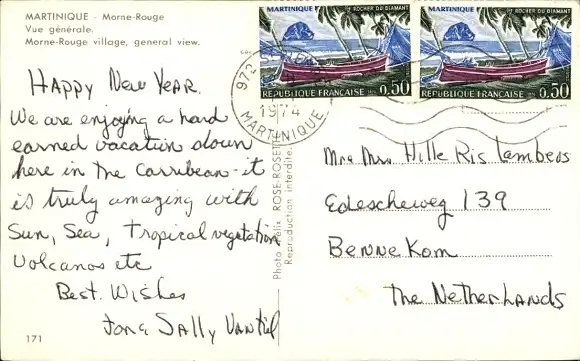 MARTINIQUE - Morne-Rouge
Vue générale.
Morne-Rouge village, general view.
HAPPY NEW YEAR.
We are enjoying a hard
earned vacation down
here in the Carribean - it
is truly amazing with
Sun, Sea, Tropical vegetation
Volcanos etc
Best Wishes
Sally
171
Photo Félix ROSE-ROSETTE
Reproduction interdite.
MARTINIQUE ROCHER DU DIAMANT
REPUBLIQUE FRANÇAISE 0,50
MARTINIQUE ROCHER DU DIAMANT
REPUBLIQUE FRANÇAISE 0,50
972
1974
MARTINIQUE
Mrs Hille Ris Lambers
Edescheweg 139
BenneKom
The NetherLands